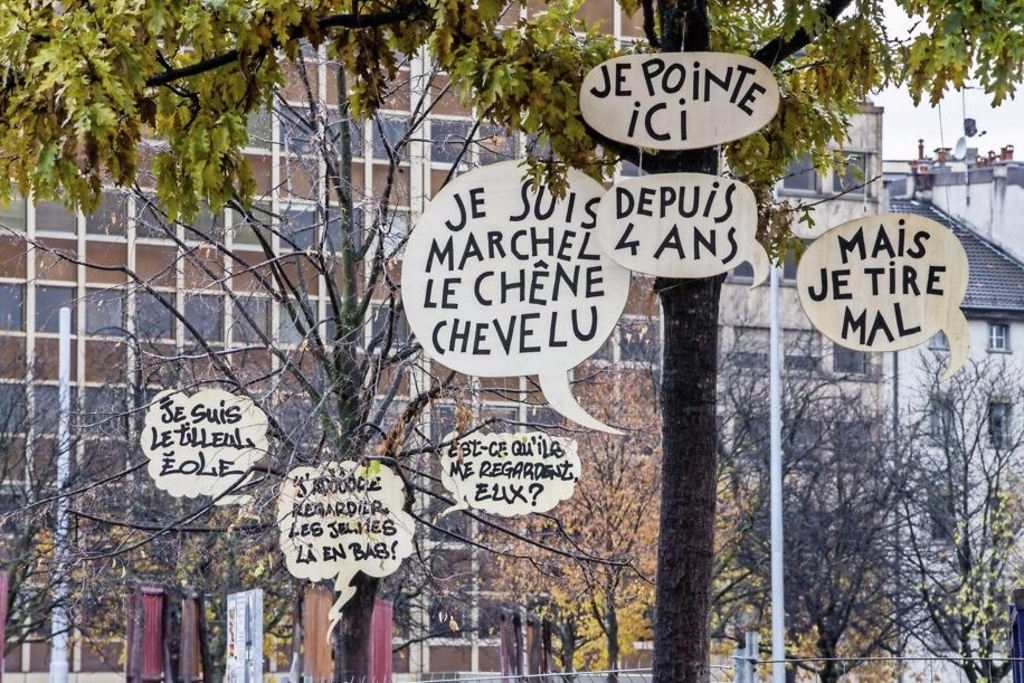 JE POINTE
ICI
JE SUIS
MARCHEL
LE CHÊNE
CHEVELU
DEPUIS
4 ANS
MAIS
JE TIRE
MAL
JE SUIS
LE TILLEUL,
ÉOLE
J'ADOOOORE
REGARDER
LES JEUNES
LÀ EN BAS!
EST-CE QU'ILS
ME REGARDENT,
EUX?